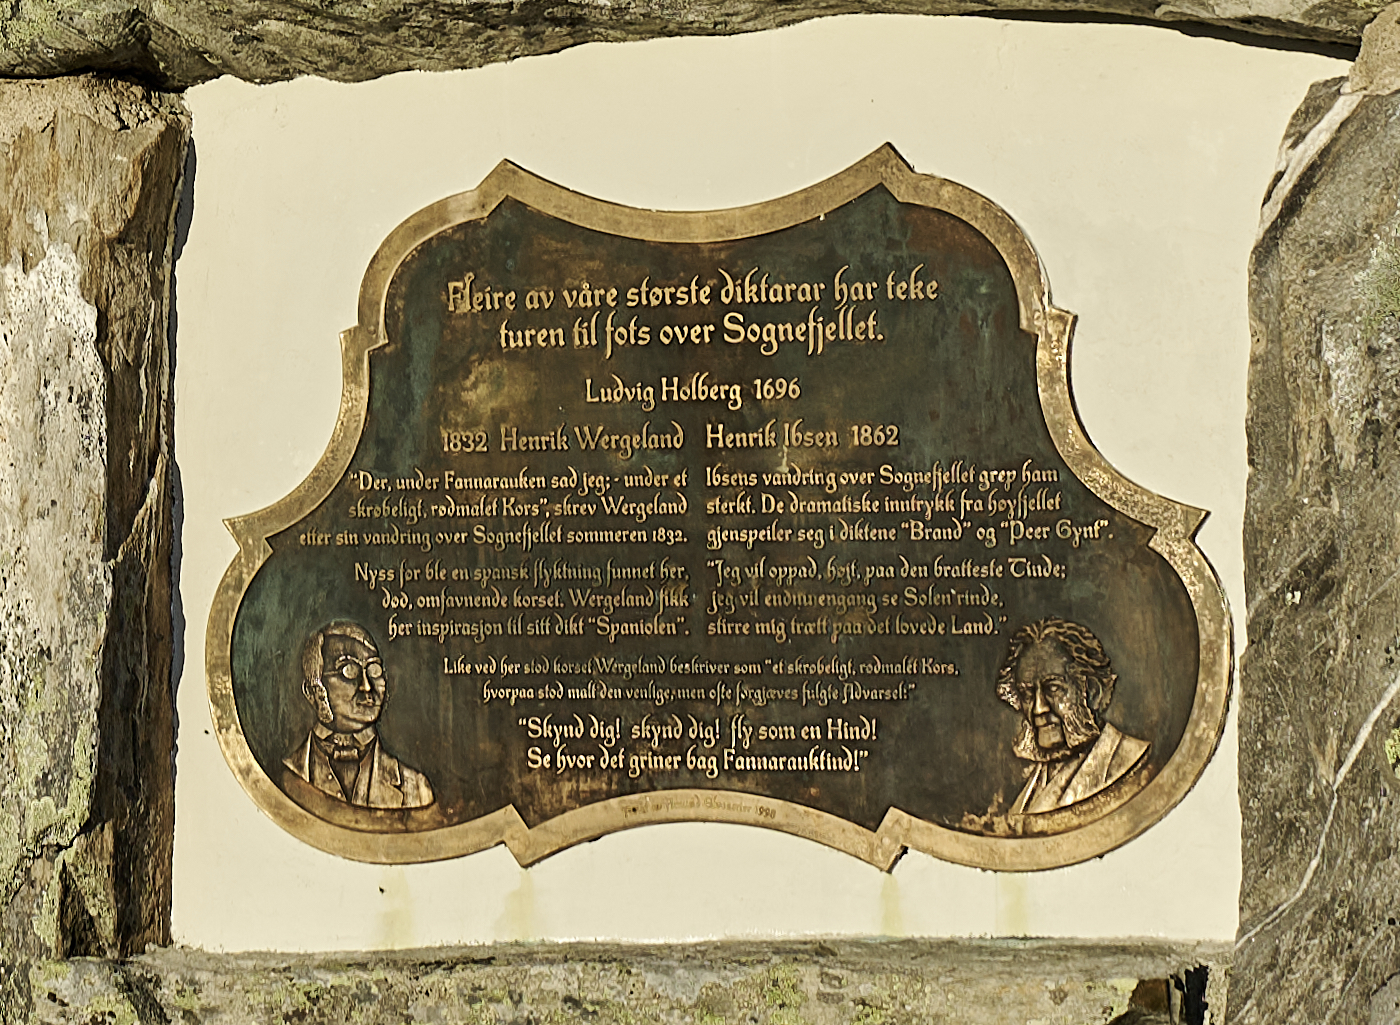 Fleire av våre største diktarar har teke
turen til fots over Sognefjellet.
Ludvig Holberg 1696
1832 Henrik Wergeland
"Der, under Fannarauken sad jeg; - under et
skrøbeligt, rødmalet Kors", skrev Wergeland
etter sin vandring over Sognefjellet sommeren 1832.
Nyss før ble en spansk flyktning funnet her,
død, omfavnende korset. Wergeland fikk
her inspirasjon til sitt dikt "Spaniolen".
Henrik Ibsen 1862
Ibsens vandring over Sognefjellet grep ham
sterkt. De dramatiske inntrykk fra høyfjellet
gjenspeiler seg i diktene "Brand" og "Peer Gynt".
"Jeg vil oppad, højt, paa den bratteste Tinde;
Jeg vil endnu engang se Solen rinde,
stirre mig træt paa det lovede Land."
Like ved her stod korset Wergeland beskriver som "et skrøbeligt, rødmalet Kors,
hvorpaa stod malt den venlige, men ofte forgjæves fulgte Advarsel:"
"Skynd dig! skynd dig! fly som en Hind!
Se hvor det griner bag Fannarauktind!"
1998